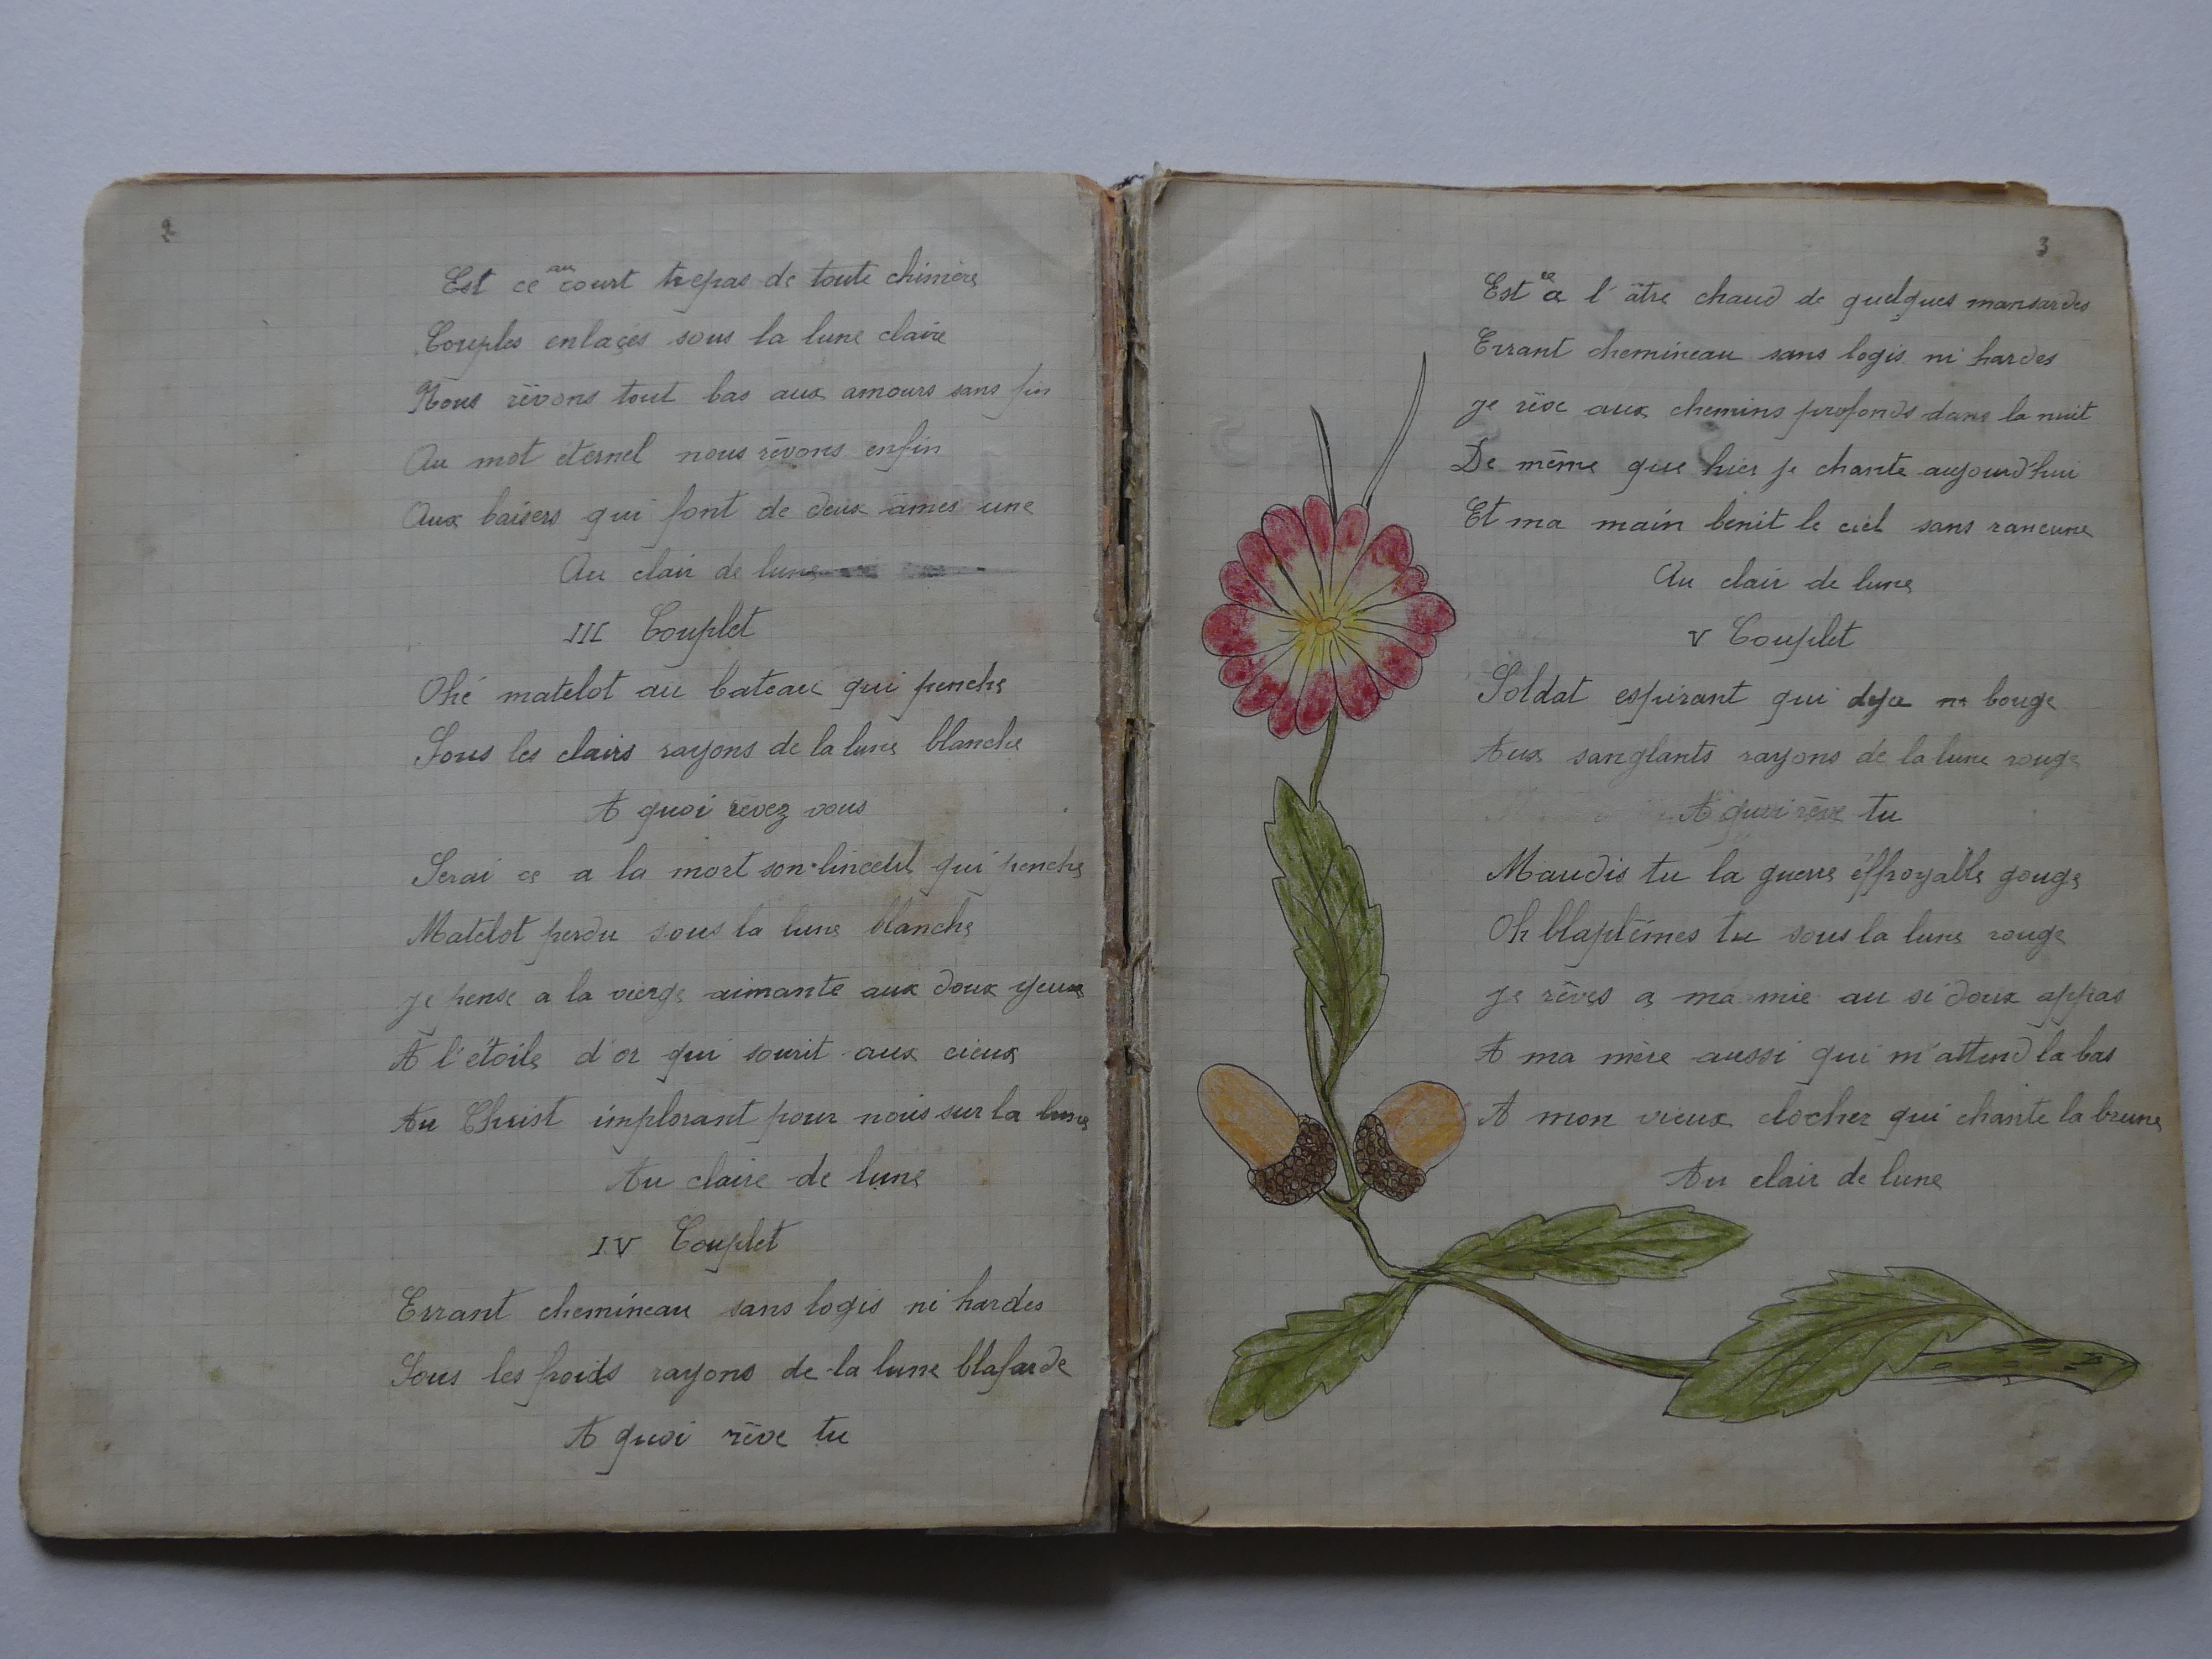 2
Est ce au court trepas de toute chimère
Couples enlaçés sous la lune claire
Nous rêvons tout bas aux amours sans fin
Au mot eternel nous rêvons enfin
Aux baisers qui font de deux âmes une
Au clair de lune
III Couplet
Ohé matelot au bateau qui penche
Sous les clairs rayons de la lune blanche
A quoi rêvez vous
Serai ce a la mort son linceul qui penche
Matelot perdu sous la lune blanche
je pense a la vierge aimante aux doux yeux
A l'étoile d'or qui sourit aux cieux
Au Christ implorant pour nous sur la lune
Au claire de lune
IV Couplet
Errant chemineau sans logis ni hardes
Sous les froids rayons de la lune blafarde
A quoi rêve tu
3
Est ce a l'âtre chaud de quelques mansardes
Errant chemineau sans logis ni hardes
je rêve aux chemins profonds dans la nuit
De même que hier je chante aujourd'hui
Et ma main benit le ciel sans rancune
Au clair de lune
V Couplet
Soldat espirant qui deja ne bouge
Aux sanglants rayons de la lune rouge
A quoi rêve tu
Maudis tu la guerre éffroyable gouge
Oh blaptêmes tu sous la lune rouge
je rêves a ma mie au si doux appas
A ma mère aussi qui m'attend la bas
A mon vieux clocher qui chante la brune
Au clair de lune